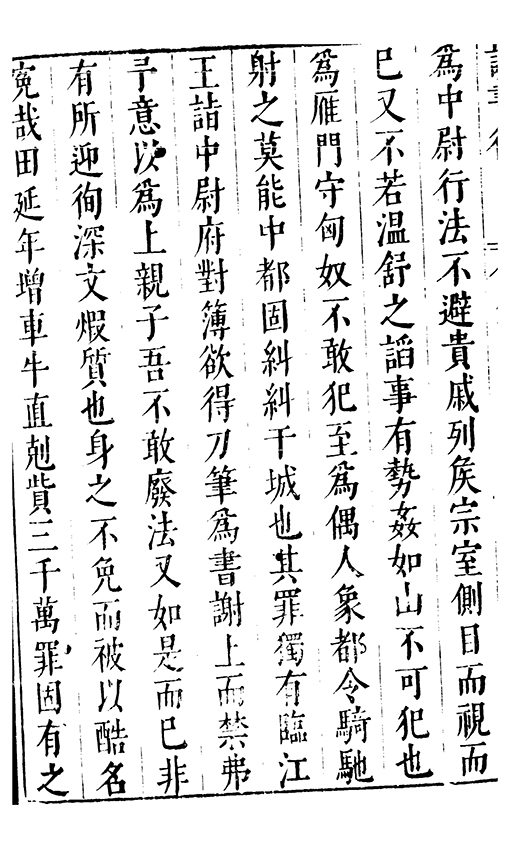 為中尉行法不避貴戚列矦宗室側目而視而
已又不若溫舒之謟事有勢姦如山不可犯也
為雁門守匈奴不敢犯至為偶人象都令騎馳
射之莫能中都固糾糾干城也其罪獨有臨江
王詣中尉府對簿欲得刀筆為書謝上而禁弗
予意以為上親子吾不敢廢法又如是而已非
有所迎徇深文煆質也身之不免而被以酷名
寃哉田延年增車牛直剋貲三千萬罪固有之